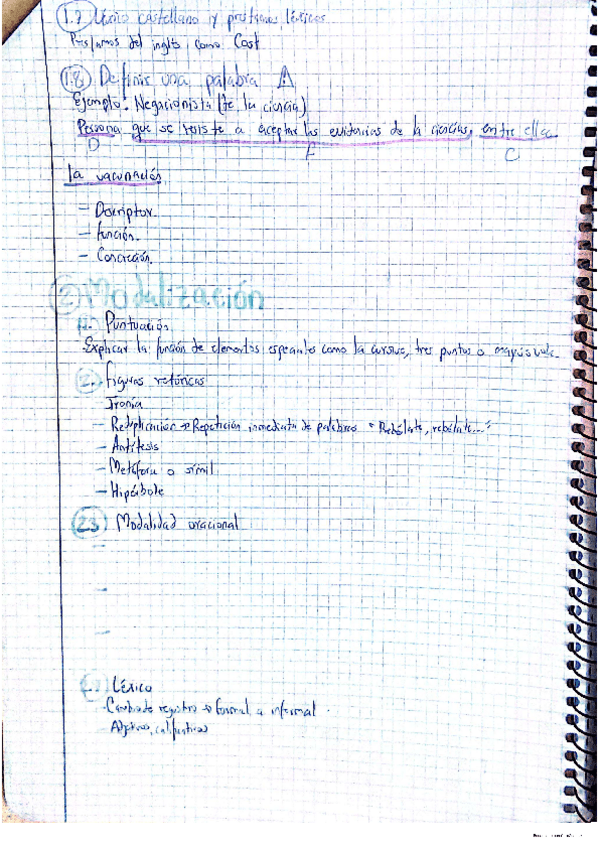 1.7 Léxico castellano y préstamos léxicos
Préstamos del inglés, como Cost
1.8 Definir una palabra
Ejemplo: Negacionista (de la ciencia)
Persona que se resiste a aceptar las evidencias de la ciencias, entre ellas
D F C
la vacunación
- Descriptor
- función.
- Concreción.
2 Modalización
Puntuación
Explicar la función de elementos especiales como la cursiva, tres puntos o mayúscula
2. figuras retóricas
Ironía
- Reduplicación → Repetición inmediata de palabras
- Antítesis
- Metáfora o símil
- Hipérbole
2.3 Modalidad oracional
-
-
-
Léxico
- Cambio de registro → formal a informal.
- Adjetivos calificativos